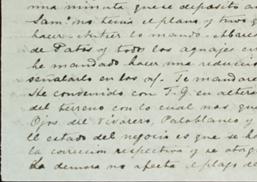 una minuta que se deposito a
Sam.¹ no tenia el plano y tuvo q
hacer. Anter lo mando.
de Patos y todos los aguajes
he mandado hacer una reducción
señalarlo en los Te mandaré
He convenido con T.G. en alterar
del terreno con lo cual mas que
Ojos del Vivarero, Paloblanco y
el estado del negocio es que se ha
la correccion respectiva y se otorg
La demora no afecta el plazo de